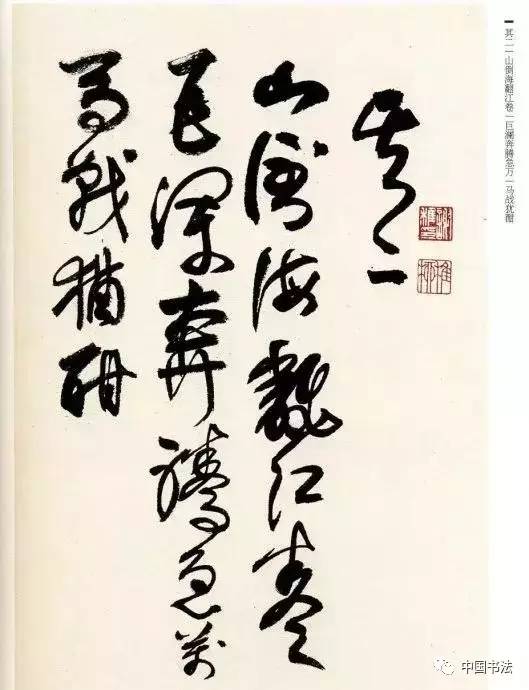 其二｜山倒海翻江卷｜巨澜奔腾急万｜马战犹酣
其二
山倒海飜江卷
巨瀾奔騰急萬
馬戰猶酣
中国书法